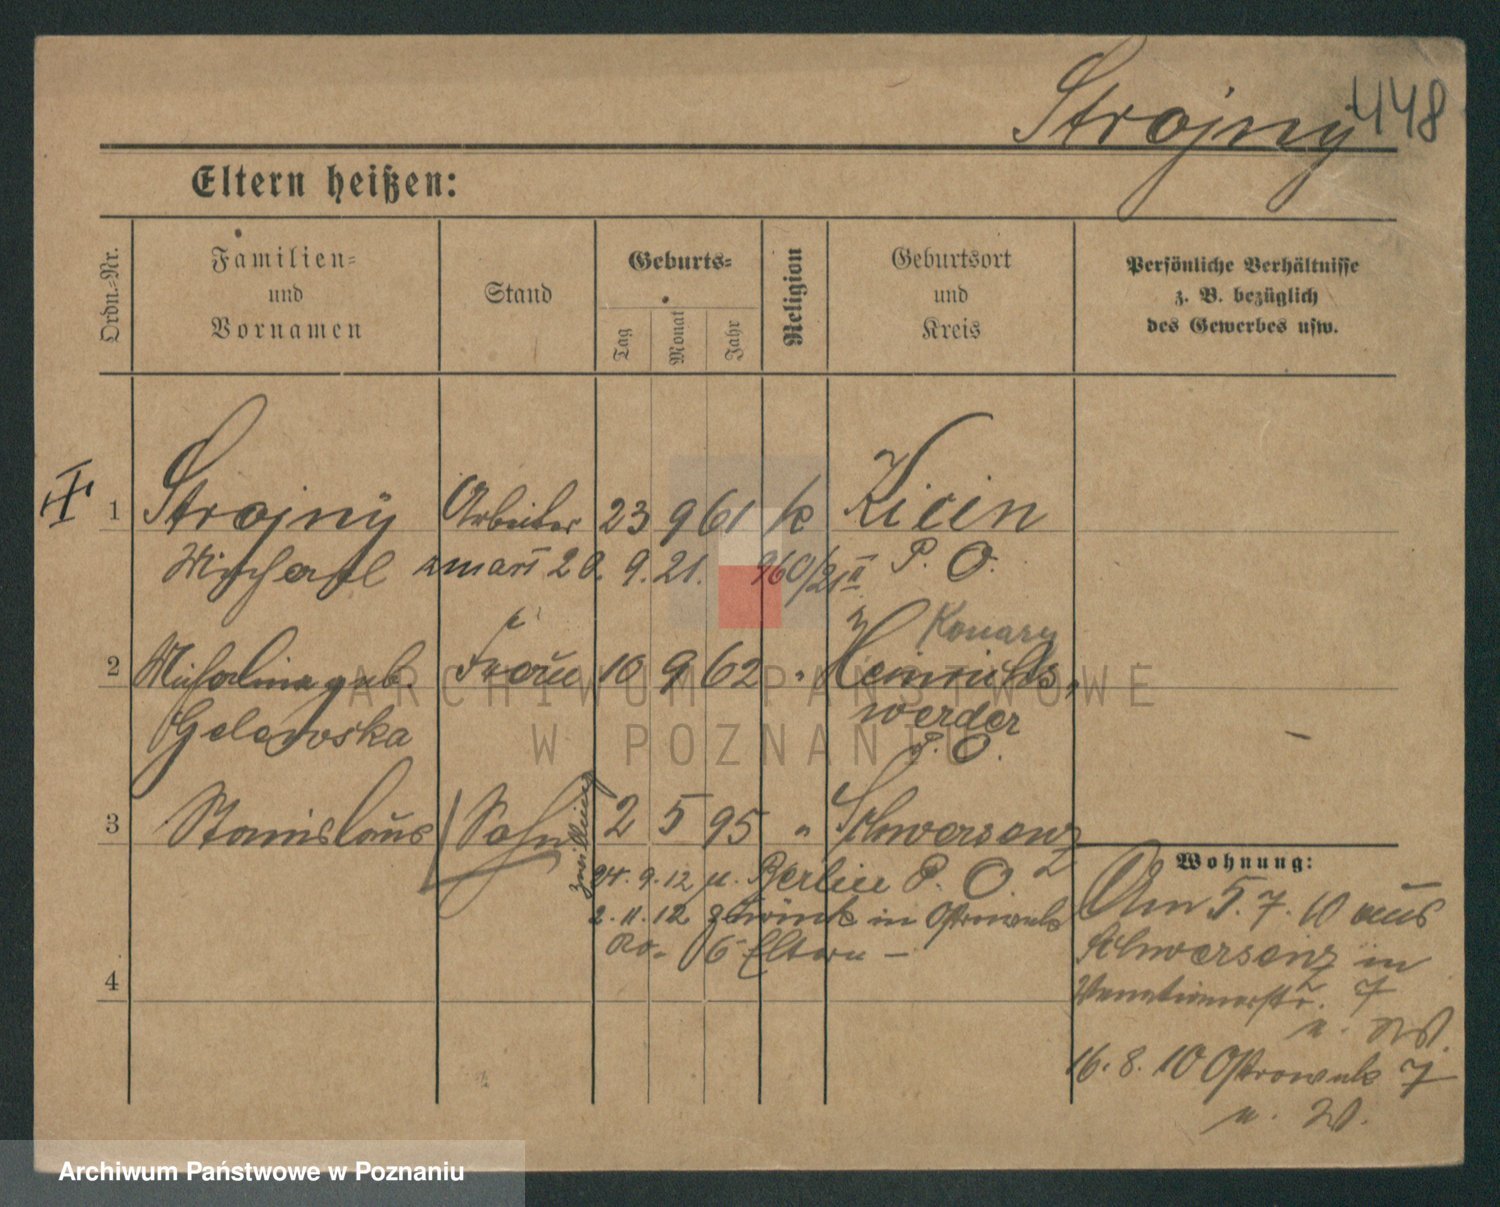 Strojny 448
Eltern heißen:
Ordn.-Nr.
Familien-
und
Vornamen
Stand
Geburts-
Tag
Monat
Jahr
Religion
Geburtsort
und
Kreis
Persönliche Verhältnisse
z. B. bezüglich
des Gewerbes usw.
1 Strojny Arbeiter 23 9 61 k Kicin
Michael zmarł 20. 9. 21. 960/21 II P. O.
Konary
2 Michalina geb. Frau 10 9 62 " Heinrichs
Gelerowska werder
P. O.
3 Stanislaus Sohn 2 5 95 " Schwersenz
Zwilling
24. 9. 12 n. Berlin P. O.
2. 11. 12 zurück in Ostrowek
No. 6 Eltern —
4
Wohnung:
Am 5. 7. 10 aus
Schwersenz in
Venetianerstr. 7
16. 8. 10 Ostrowek 7
n. W.
ARCHIWUM PAŃSTWOWE
W POZNANIU
Archiwum Państwowe w Poznaniu